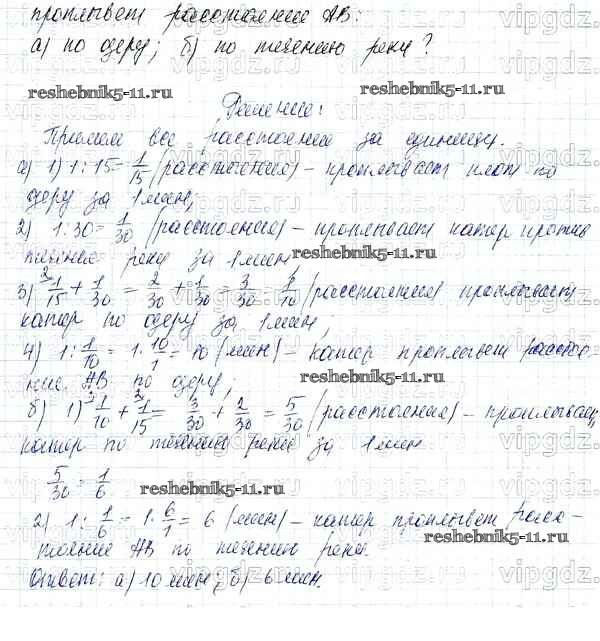 проплывет расстояние АВ:
а) по озеру; б) по течению реки?
reshebnik5-11.ru reshebnik5-11.ru
Решение:
Примем все расстояние за единицу.
а) 1) 1:15=1/15 (расстояния) – проплывает плот по
озеру за 1 мин;
2) 1:30=1/30 (расстояния) – проплывает катер против
течения реки за 1 мин
reshebnik5-11.ru
3) 1/15+1/30=2/30+1/30=3/30=1/10 (расстояния) проплывает
катер по озеру за 1 мин;
4) 1:1/10=1·10/1=10 (мин) – катер проплывет расстоя-
ние АВ по озеру;
reshebnik5-11.ru
б) 1) 1/10+1/15=3/30+2/30=5/30 (расстояния) – проплывает
катер по течению реки за 1 мин
5/30=1/6
reshebnik5-11.ru
2) 1:1/6=1·6/1=6 (мин) – катер проплывет расс-
тояние АВ по течению реки.
reshebnik5-11.ru
Ответ: а) 10 мин; б) 6 мин.
vipgdz.ru